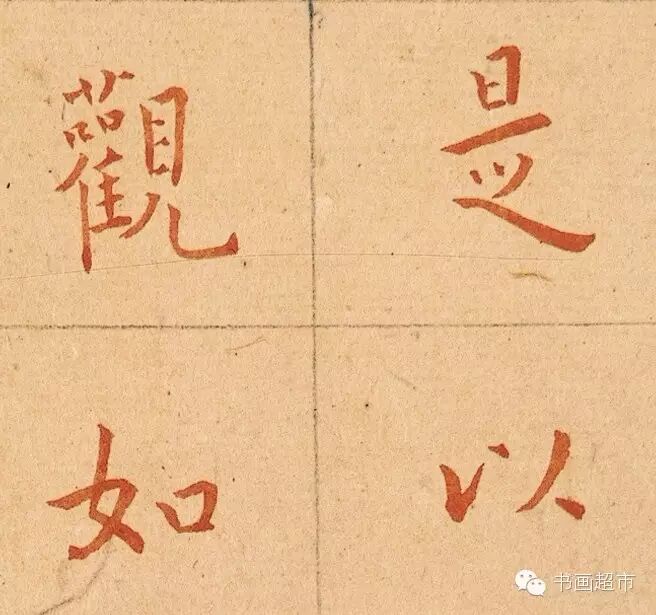 是以
觀如
书画超市